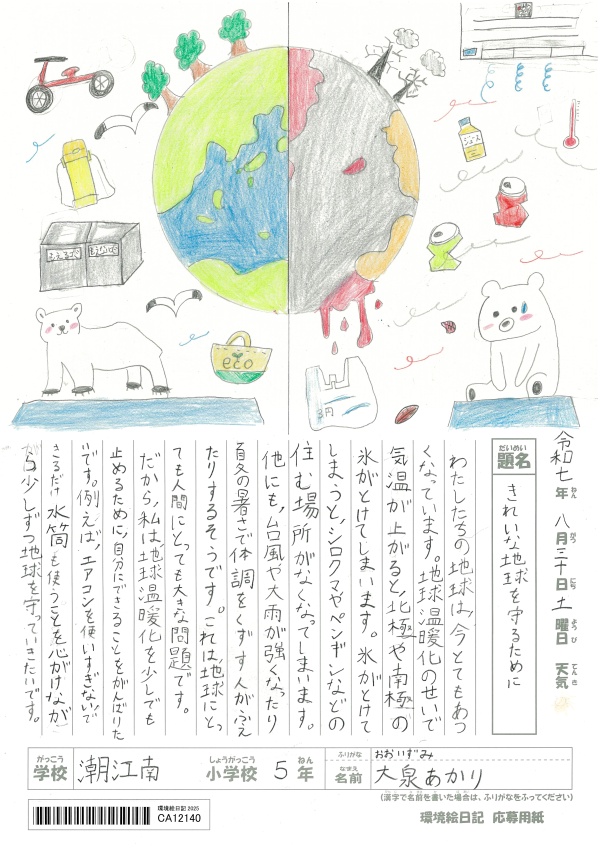 もえるゴミ
もえないゴミ
eco
3円
ジュース
令和七年 八月三十日 土曜日 天気
ねん がつ にち ようび てんき
だいめい
題名
きれいな地球を守るために
わたしたちの地球は、今とてもあつ
くなっています。地球温暖化のせいで
気温が上がると、北極や南極の
氷がとけてしまいます。氷がとけて
しまうと、シロクマやペンギンなどの
住む場所がなくなってしまいます。
他にも、台風や大雨が強くなったり
夏の暑さで体調をくずす人がふえ
たりするそうです。これは、地球にとっ
ても人間にとっても大きな問題です。
だから、私は地球温暖化を少しでも
止めるために、自分にできることをがんばりた
いです。例えば、エアコンを使いすぎない、で
きるだけ水筒も使うことを心がけなが
ら少しずつ地球を守っていきたいです。
がっこう しょうがっこう ねん
学校 潮江南 小学校 5年
ふりがな おおいずみ
なまえ
名前 大泉あかり
(漢字で名前を書いた場合は、ふりがなをふってください)
環境絵日記 2025
CA12140
環境絵日記 応募用紙